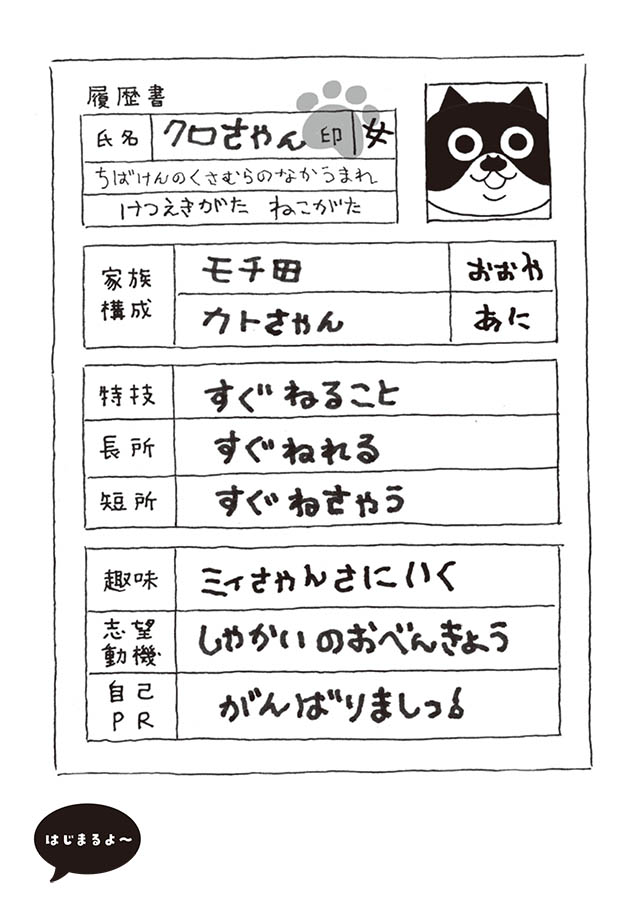 履歴書
氏名 クロさやん 印 女
ちばけんのくさむらのなかうまれ
けつえきがた ねこがた
家族構成 モチ田 おおや
カトさやん あに
特技 すぐねること
長所 すぐねれる
短所 すぐねさやう
趣味 ミィさやんさにいく
志望動機 しやかいのおべんきょう
自己PR がんばりましっ
はじまるよ〜